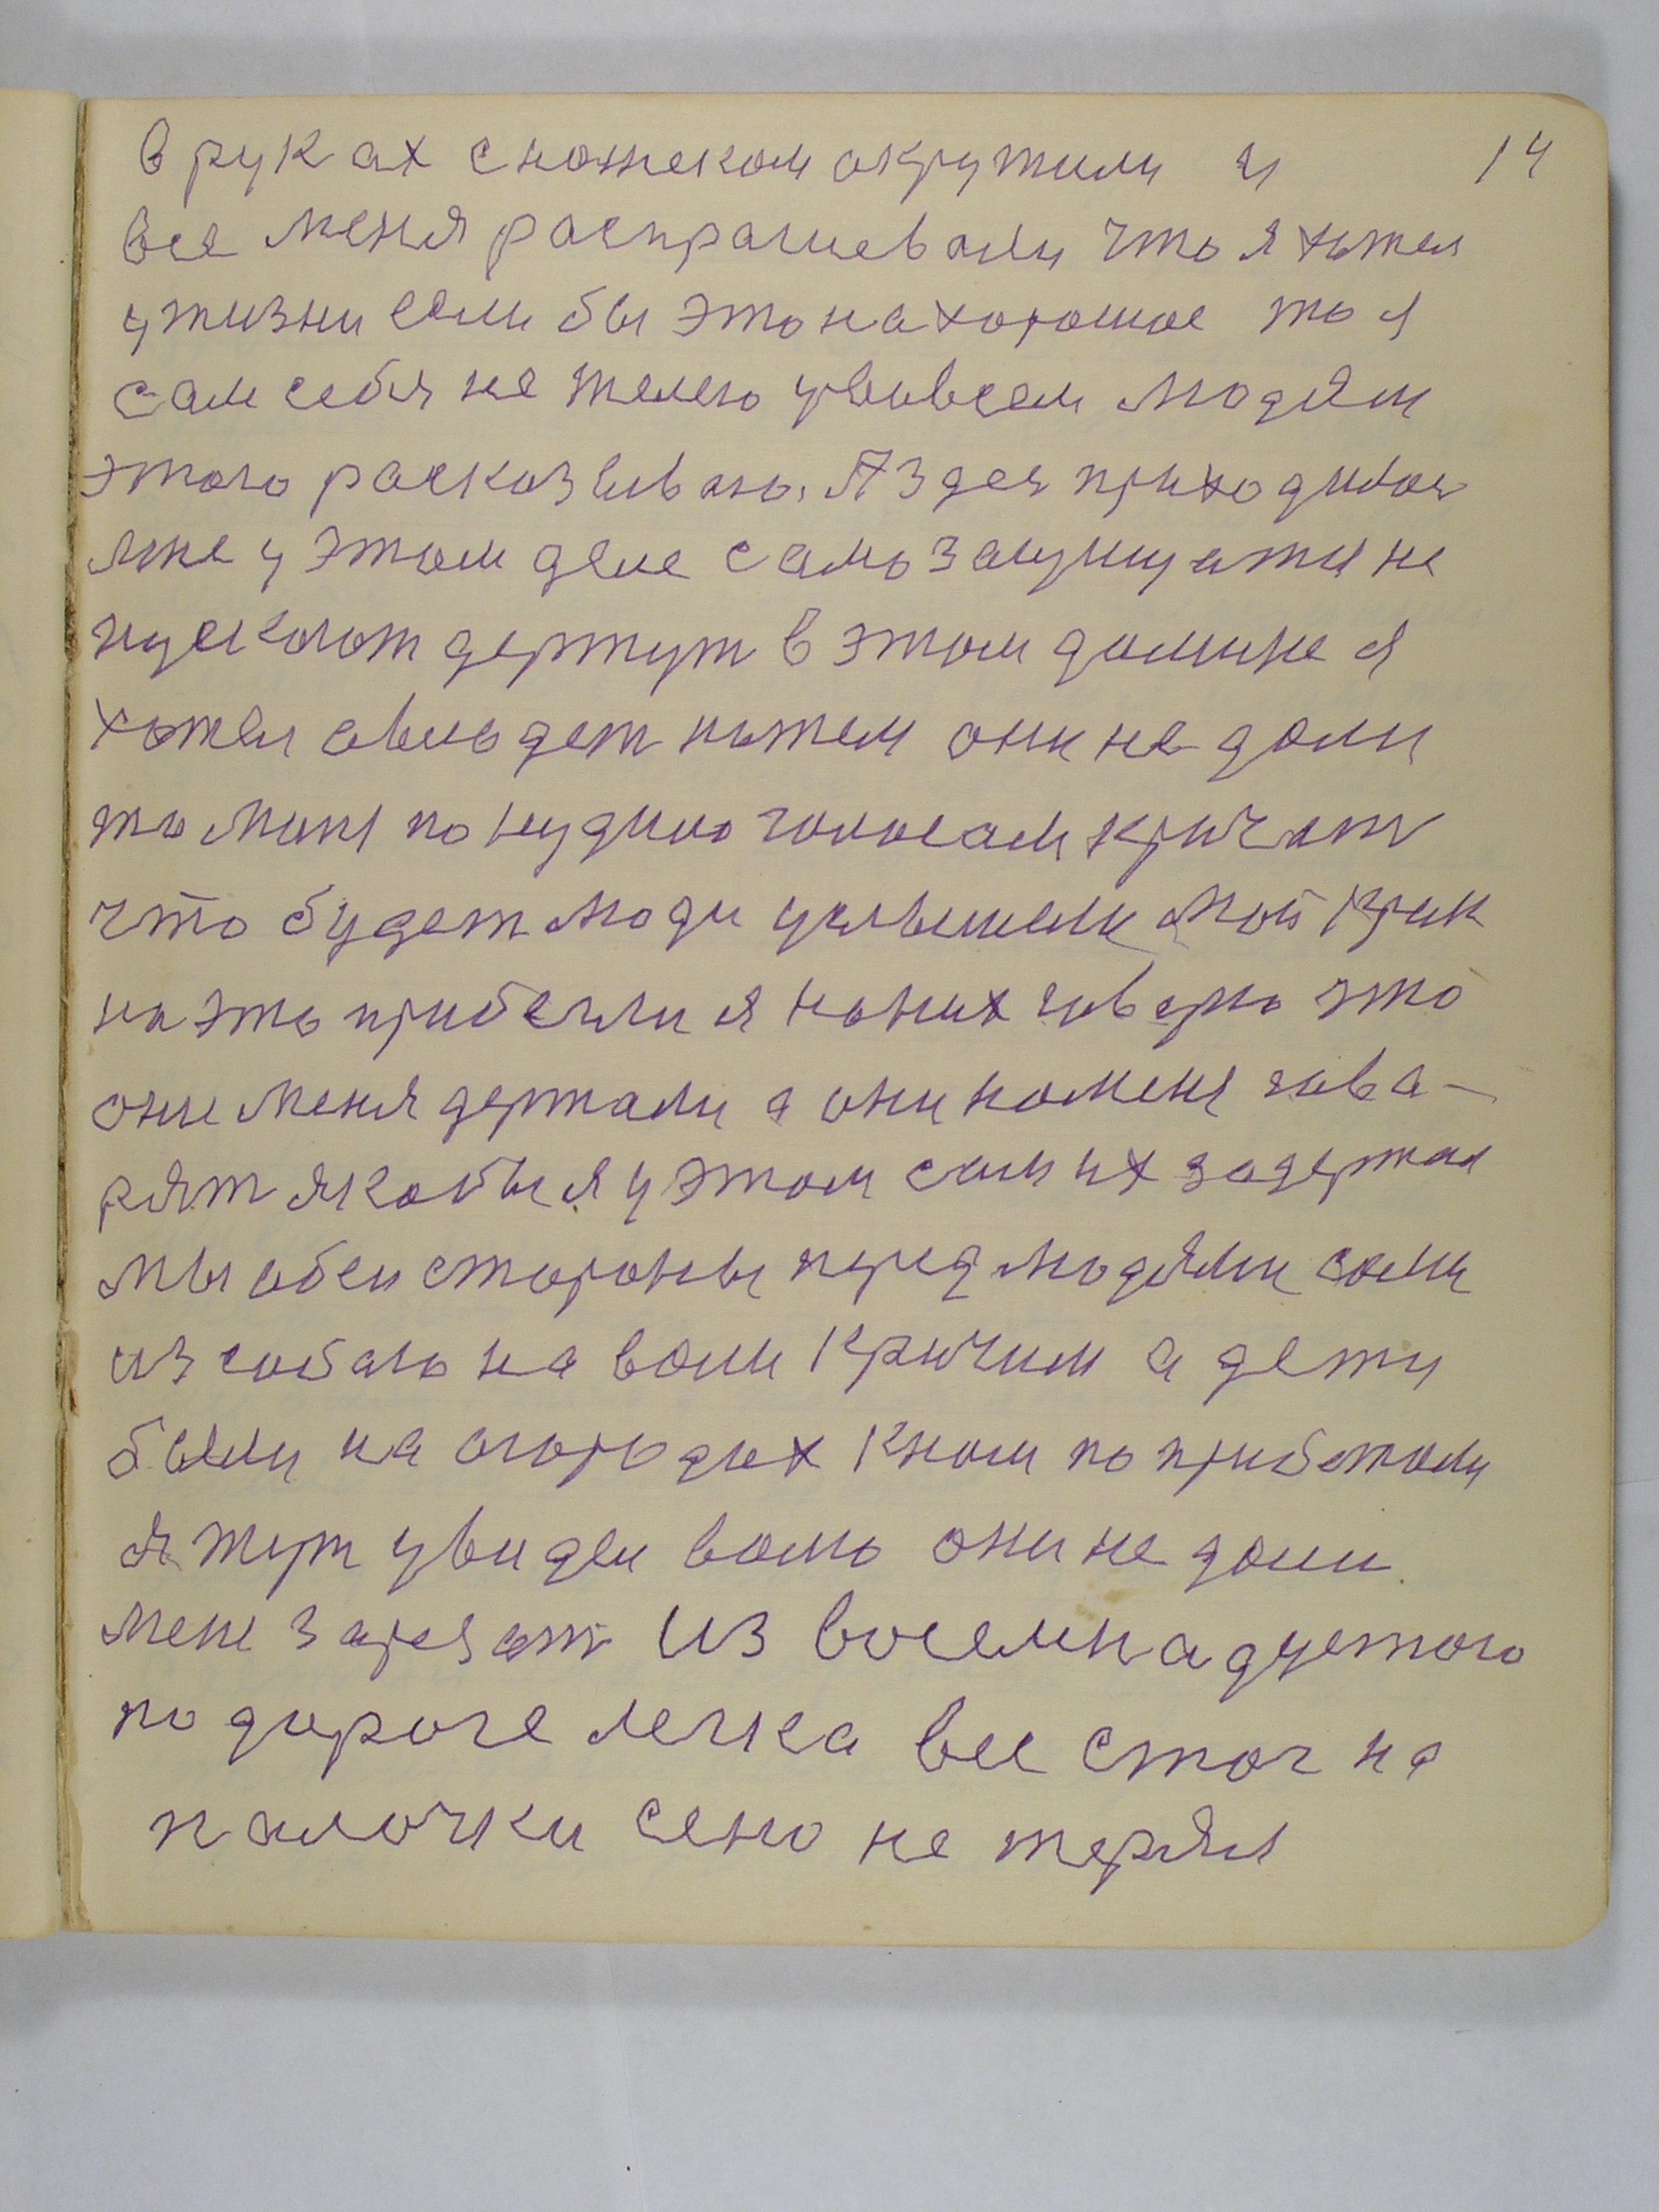 в руках сножеком окружили и 14
все меня распрашевали что я хотел
у жизни если бы это на хорошое то я
сам себя не жалею увывсем людям
этого расказываю. А здея приходился
мне у этом деле само защищатия не
пускают держут в этом домине я
хотел овлодет ножем они не дали
то миня понудило голосам кричат
что будет люди услышели мой крик
на это прибегли я наних говорю что
они меня держали а они на меня гова-
рят якобы я у этом сам их задержал
мы обеи стороны перед людями сами
из собаю на воли кричим а дети
были на огородах кнам по прибжали
я тут увидел волю они не дали
меня зарезат из восемнадцетого
по дороге легка все стог на
палочки сено не терял